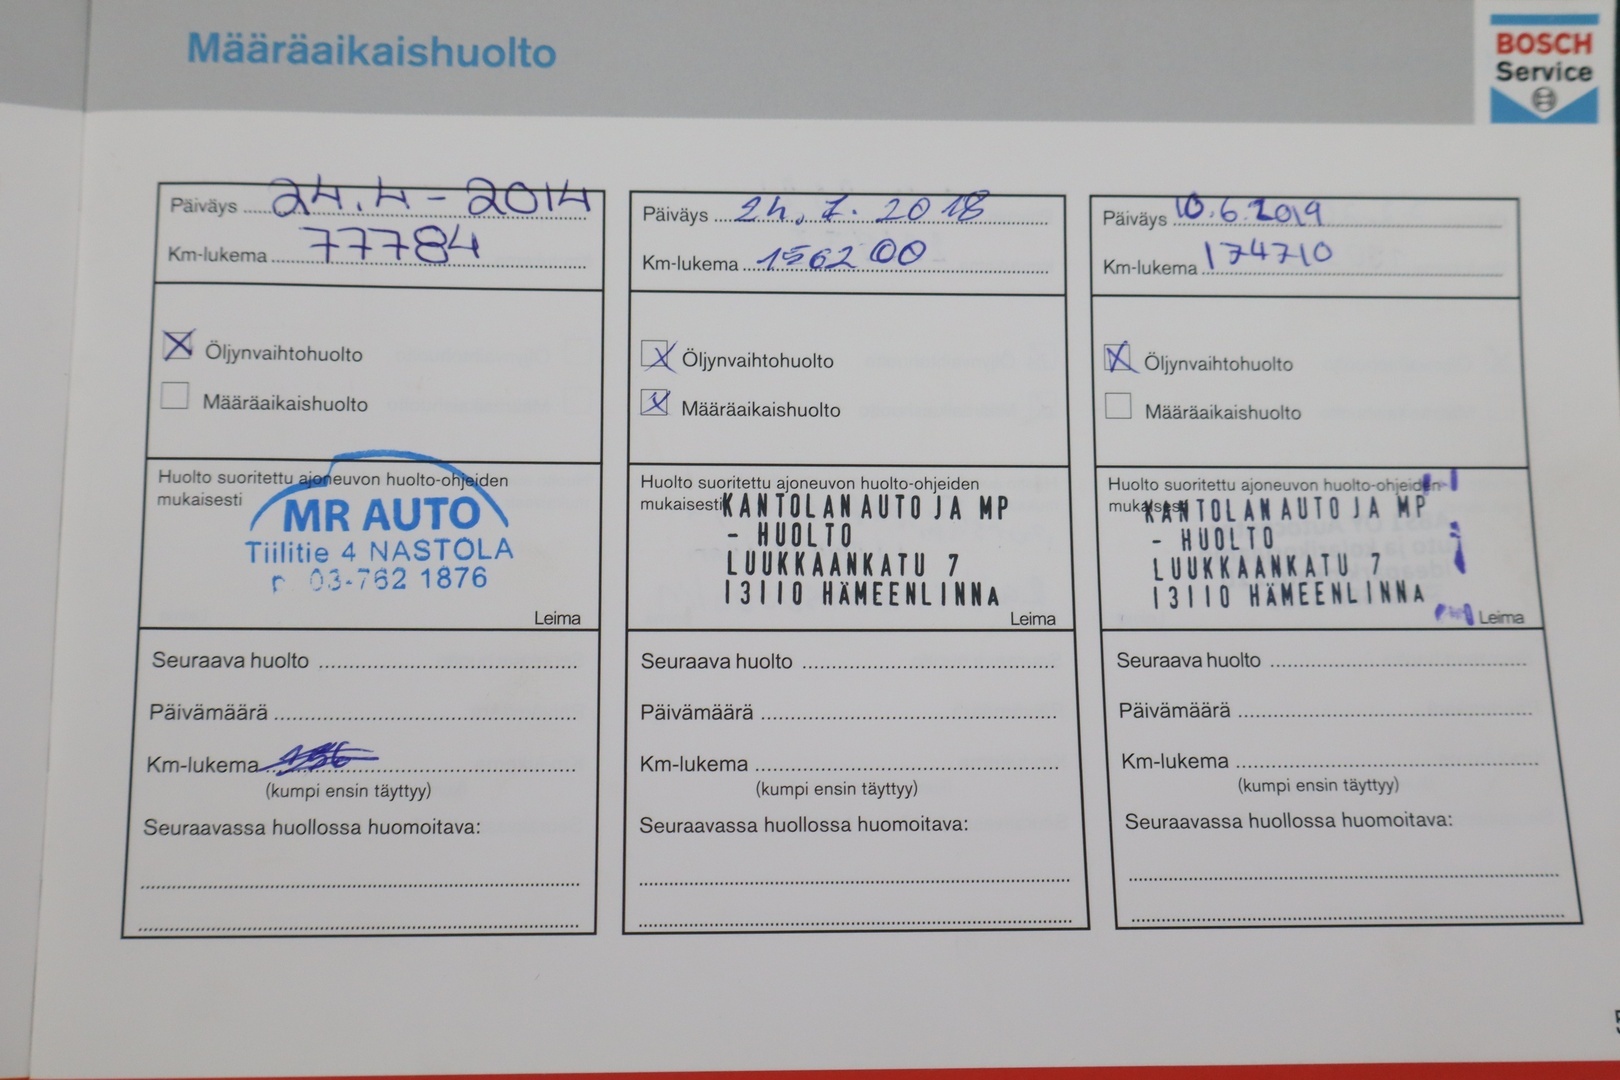 Määräaikaishuolto
BOSCH
Service
Päiväys 24.4-2014
Km-lukema 77784
Öljynvaihtohuolto
Määräaikaishuolto
Huolto suoritettu ajoneuvon huolto-ohjeiden
mukaisesti
MR AUTO
Tiilitie 4 NASTOLA
p 03-762 1876
Leima
Seuraava huolto
Päivämäärä
Km-lukema
(kumpi ensin täyttyy)
Seuraavassa huollossa huomoitava:
Päiväys 24.7.2018
Km-lukema 156200
Öljynvaihtohuolto
Määräaikaishuolto
Huolto suoritettu ajoneuvon huolto-ohjeiden
mukaisesti
KANTOLAN AUTO JA MP
- HUOLTO
LUUKKAANKATU 7
13110 HÄMEENLINNA
Leima
Seuraava huolto
Päivämäärä
Km-lukema
(kumpi ensin täyttyy)
Seuraavassa huollossa huomoitava:
Päiväys 10.6.2019
Km-lukema 174710
Öljynvaihtohuolto
Määräaikaishuolto
Huolto suoritettu ajoneuvon huolto-ohjeiden
mukaisesti
KANTOLAN AUTO JA MP
- HUOLTO
LUUKKAANKATU 7
13110 HÄMEENLINNA
Leima
Seuraava huolto
Päivämäärä
Km-lukema
(kumpi ensin täyttyy)
Seuraavassa huollossa huomoitava: